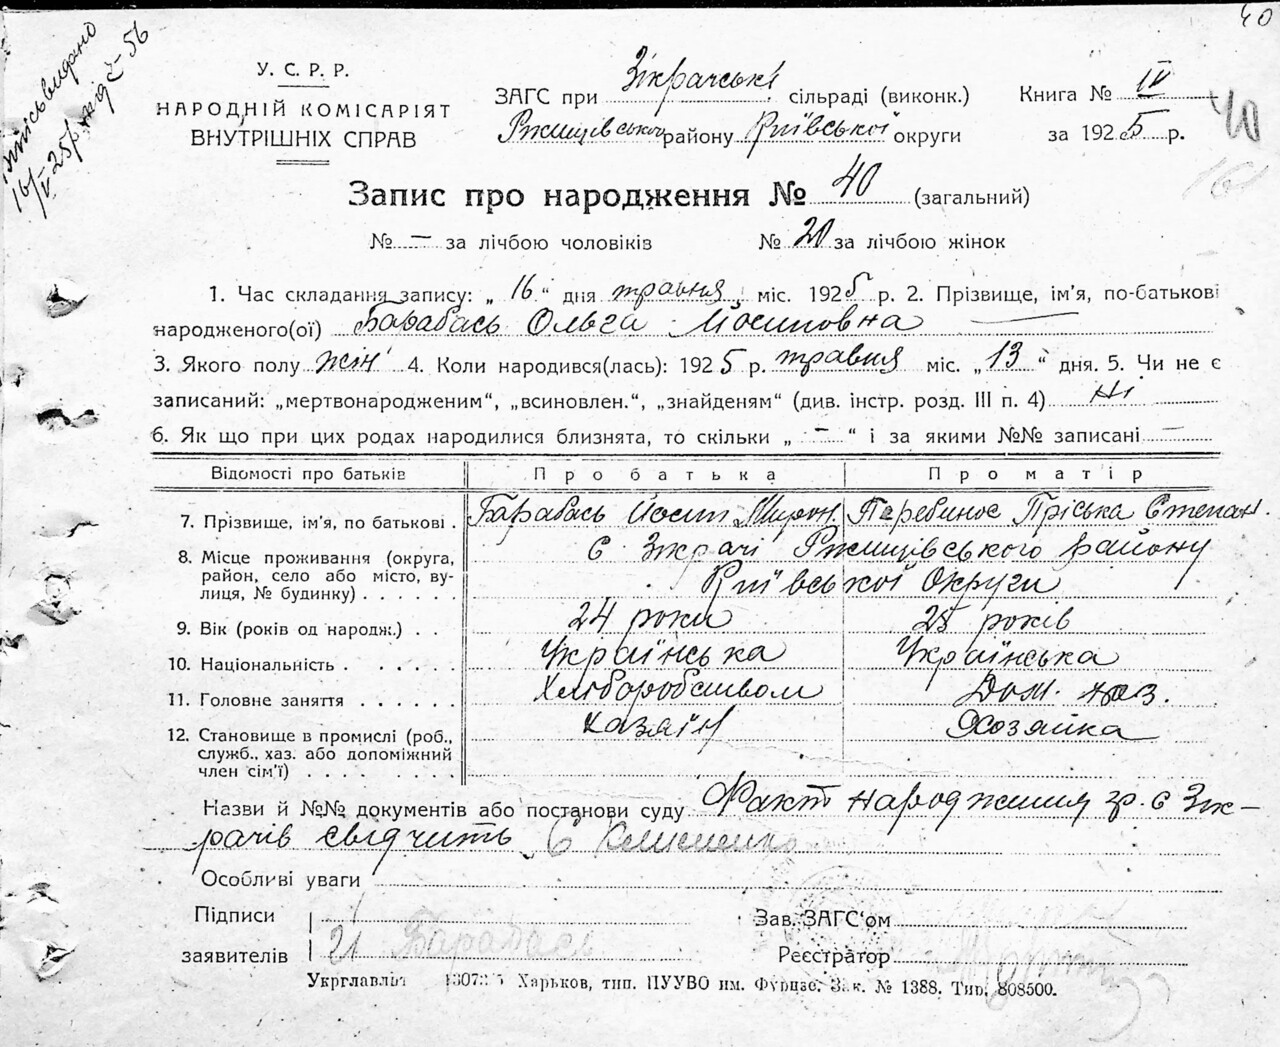 40
У. С. Р. Р.
НАРОДНІЙ КОМІСАРІЯТ
ВНУТРІШНІХ СПРАВ
ЗАГС при Зікрачські сільраді (виконк.)
Ржищівського району Київської округи
Книга № IV
за 1925 р.
40
Запис про народження № 40 (загальний)
№ — за лічбою чоловіків № 20 за лічбою жінок
1. Час складання запису: „ 16 “ дня травня міс. 1925 р. 2. Прізвище, ім'я, по-батькові
народженого(ої) Барабась Ольга Йосиповна
3. Якого полу жін 4. Коли народився(лась): 1925 р. травня міс. „ 13 “ дня. 5. Чи не є
записаний: „мертвонародженим“, „всиновлен.“, „знайденям“ (див. інстр. розд. III п. 4) Ні
6. Як що при цих родах народилися близнята, то скільки „ – “ і за якими №№ записані —
Відомості про батьків Про батька Про матір
7. Прізвище, ім'я, по батькові . Барабась Йосип Мирон. Перебинос Пріська Степан.
8. Місце проживання (округа, район, село або місто, вулиця, № будинку) . . . . . . с Зікрачі Ржищівського району
Київської округи
9. Вік (років од народж.) . . 24 роки 25 років
10. Національність . . . . . Українська Українська
11. Головне заняття . . . . . . Хліборобством Дом. хаз.
12. Становище в промислі (роб., служб., хаз. або допоміжний член сім'ї) . . . . . . . Хазяїн Хозяйка
Назви й №№ документів або постанови суду Факт народження гр. с Зік-
рачів свідчить С Клименко
Особливі уваги
Підписи
заявителів Барабась
Зав. ЗАГС'ом
Реєстратор
Укрглавліт Харьков, тип. ПУУВО им. Фрунзе. Зак. № 1388. Тир. 808500.